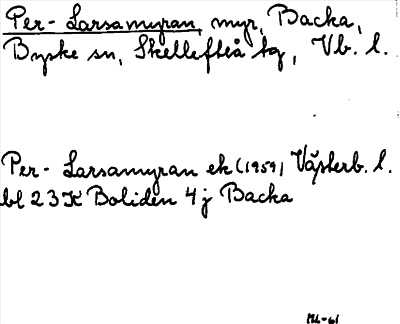 Per- Larsamyran, myr, Backa,
Byske sn, Skellefteå tg, Vb. l.
Per- Larsamyran ek (1959) Västerb. l.
bl 23K Boliden 4j Backa